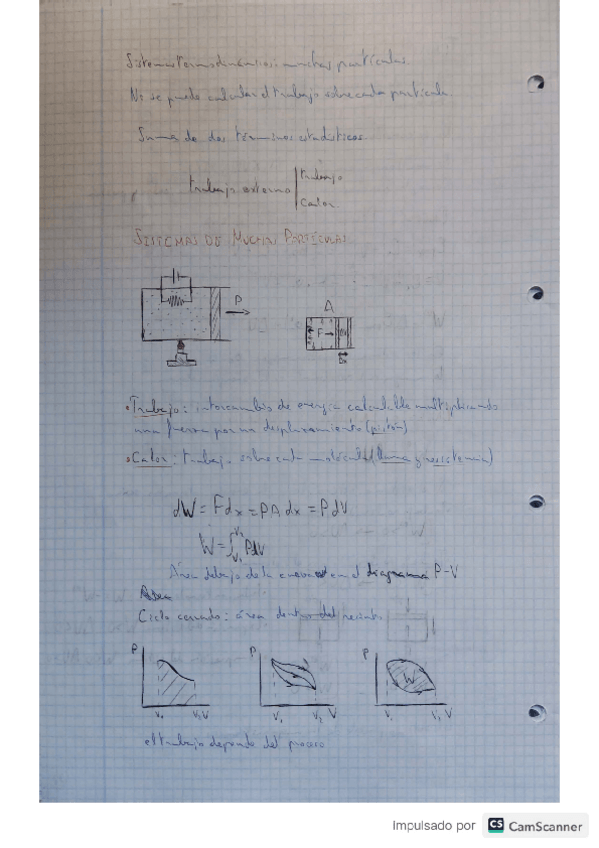 Sistemas termodinámicos: muchas partículas.
No se puede calcular el trabajo sobre cada partícula.
Suma de dos términos estadísticos
trabajo externo | trabajo
calor
SISTEMAS DE MUCHAS PARTÍCULAS
P
A
F
dx
• Trabajo: intercambio de energía calculable multiplicando
una fuerza por un desplazamiento (pistón)
• Calor: trabajo sobre cada molécula (llama y resistencia)
dW = Fdx = PA dx = PdV
W = ∫ᵥ₁ᵛ² PdV
Área debajo de la curva en el diagrama P-V
Ciclo cerrado: área dentro del recinto
P P P
W
V₁ V₂ V V₁ V₂ V V₁ V₂ V
el trabajo depende del proceso
Impulsado por CS CamScanner